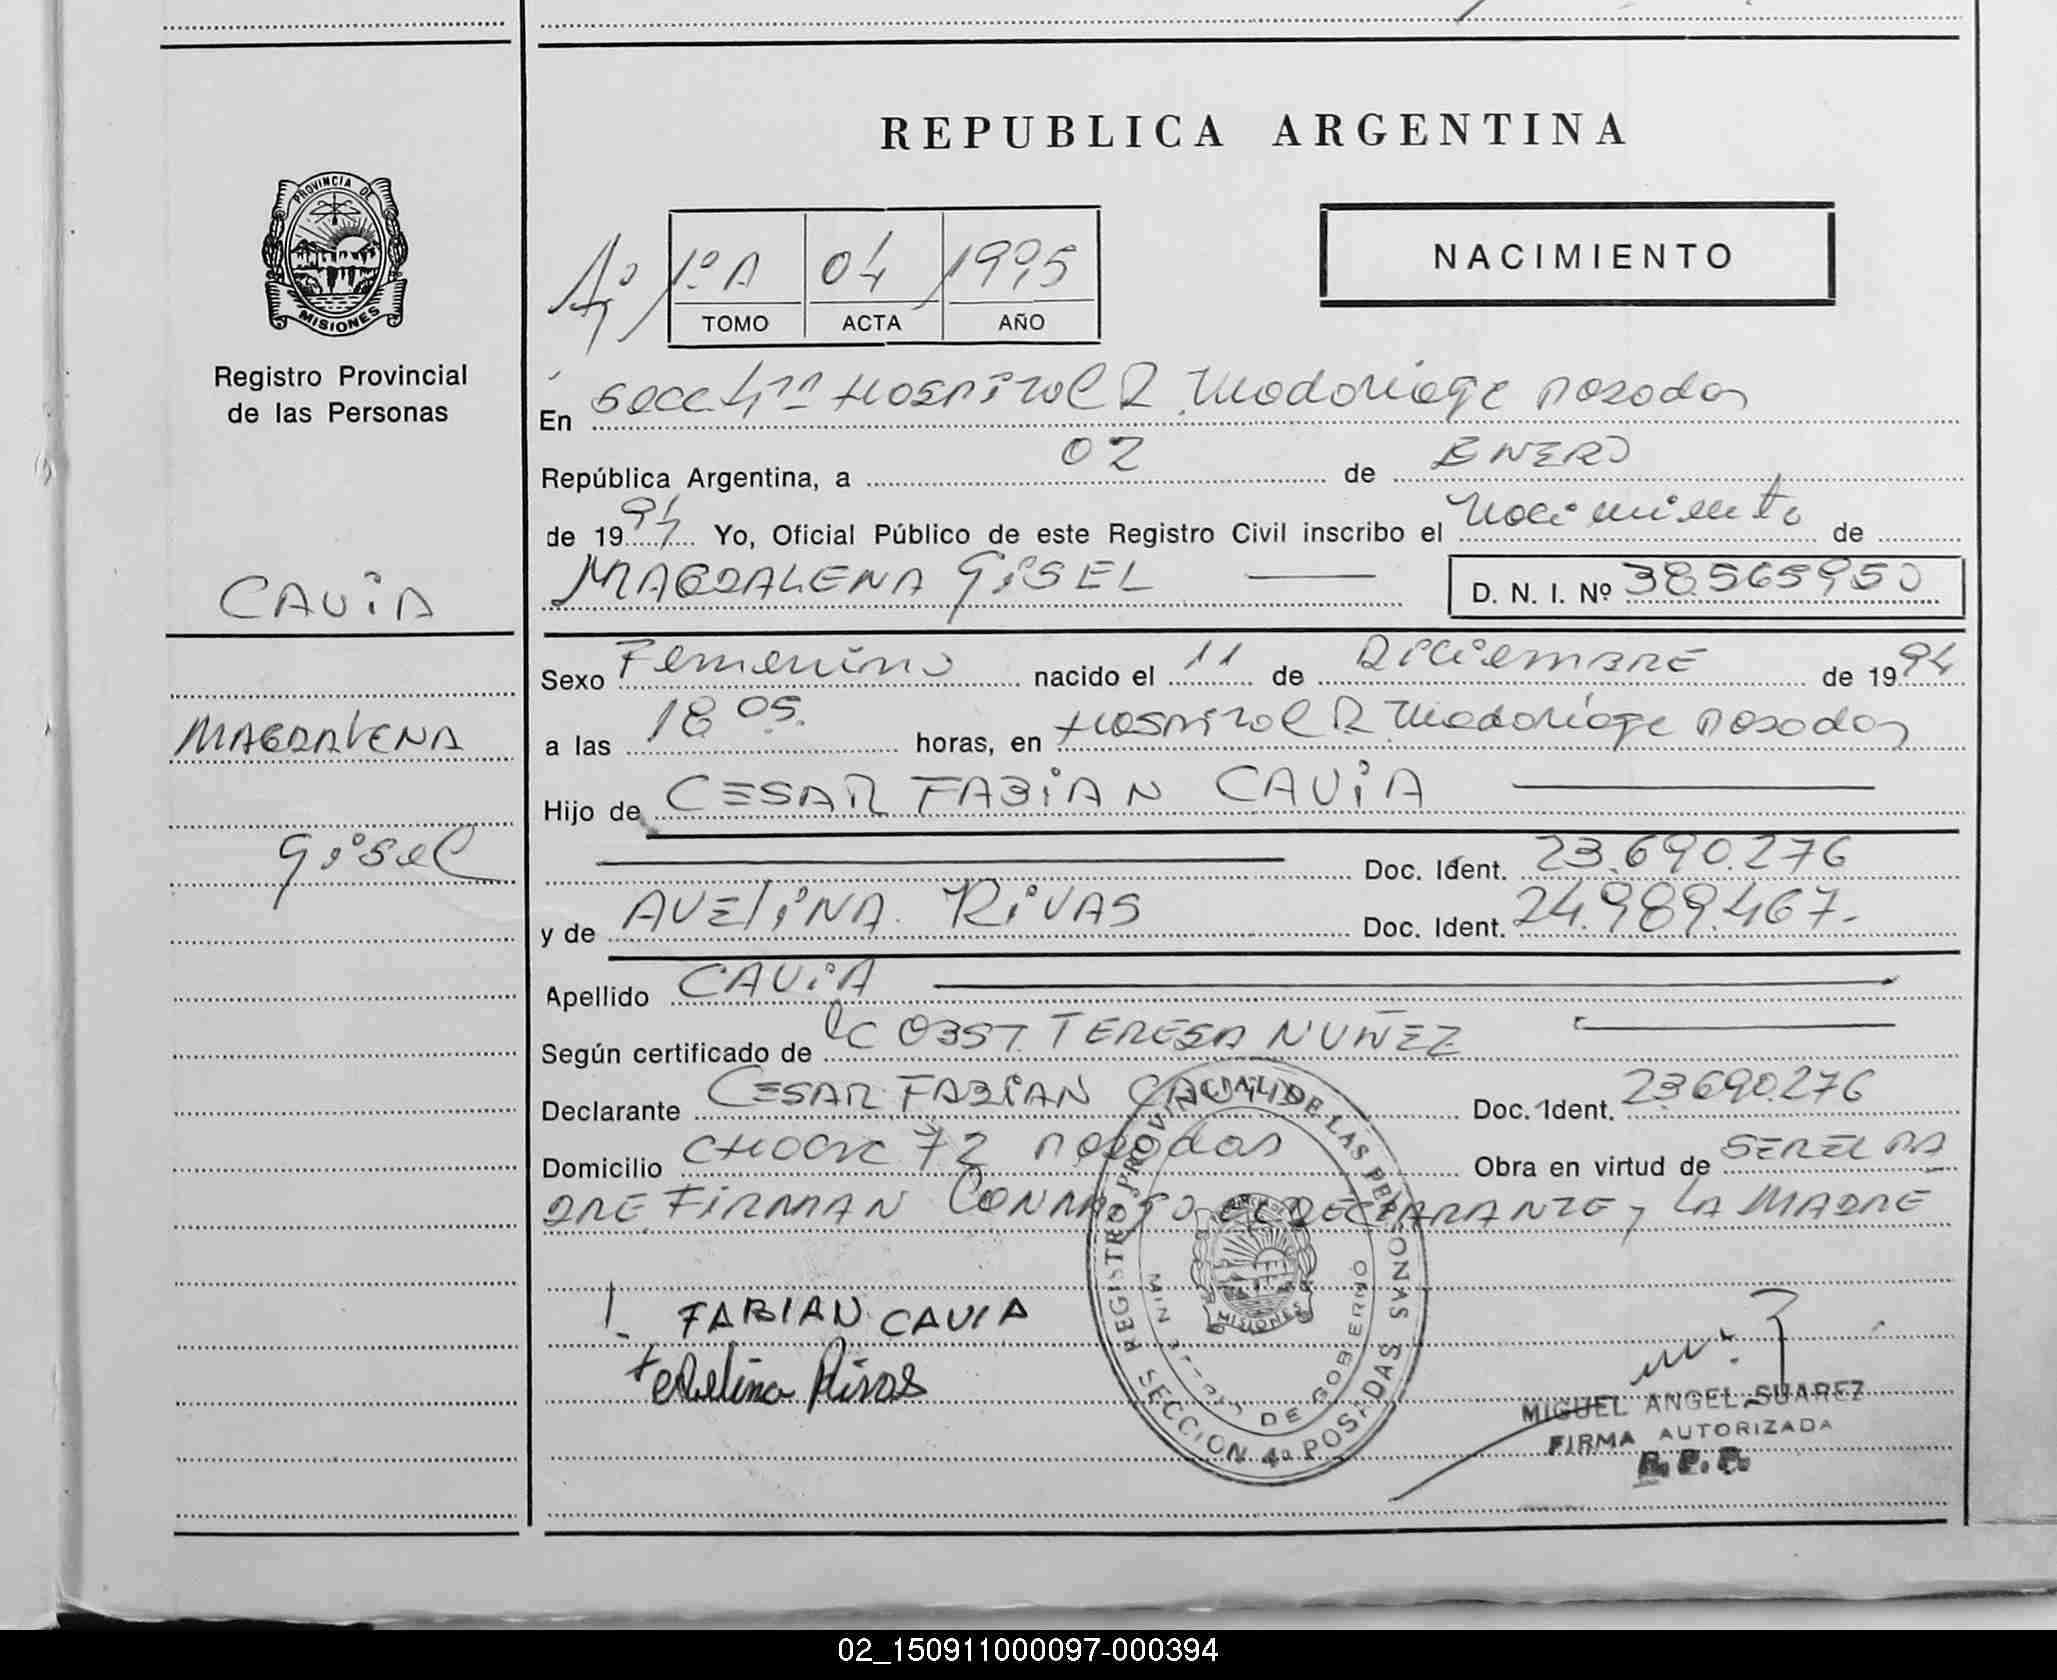 REPUBLICA ARGENTINA
PROVINCIA DE
MISIONES
Registro Provincial
de las Personas
1º A 04 1995
TOMO ACTA AÑO
NACIMIENTO
En Secc 4ta Hospital R. Madariaga Posadas
República Argentina, a 02 de ENERO
de 1994 Yo, Oficial Público de este Registro Civil inscribo el Nacimiento de
MAGDALENA GISEL D. N. I. Nº 38565950
CAVIA
Sexo Femenino nacido el 11 de DICIEMBRE de 1994
a las 18 05. horas, en Hospital R. Madariaga Posadas
MAGDALENA
Hijo de CESAR FABIAN CAVIA
Gisel
Doc. Ident. 23.690.276
y de AVELINA RIVAS Doc. Ident. 24.989.467.-
Apellido CAVIA
Según certificado de LC OBST. TERESA NUÑEZ
Declarante CESAR FABIAN CAVIA Doc. Ident. 23690.276
Domicilio 72 Posadas Obra en virtud de SER EL PA
DRE. FIRMAN CONMIGO EL DECLARANTE y LA MADRE
FABIAN CAVIA
Avelina Rivas
REGISTRO PROVINCIAL DE LAS PERSONAS
SECCION 4a POSADAS
MINISTERIO DE GOBIERNO
MISIONES
MIGUEL ANGEL SUAREZ
FIRMA AUTORIZADA
R. P. P.
02_150911000097-000394